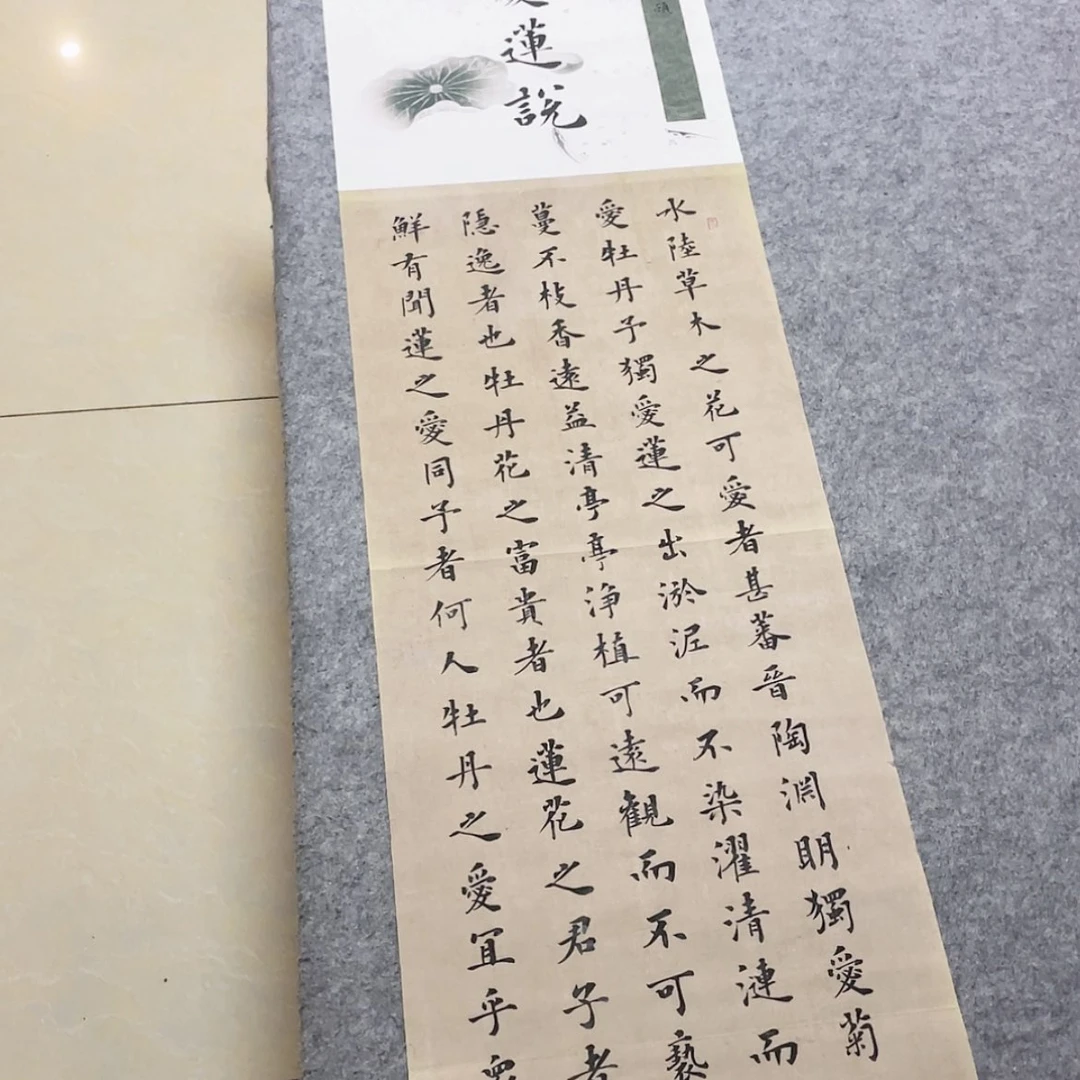 蓮說
水陸草木之花可愛者甚蕃晉陶淵明獨愛菊
愛牡丹子獨愛蓮之出淤泥而不染濯清漣而
蔓不枝香遠益清亭亭淨植可遠觀而不可褻
隱逸者也牡丹花之富貴者也蓮花之君子者
鮮有聞蓮之愛同子者何人牡丹之愛宜乎